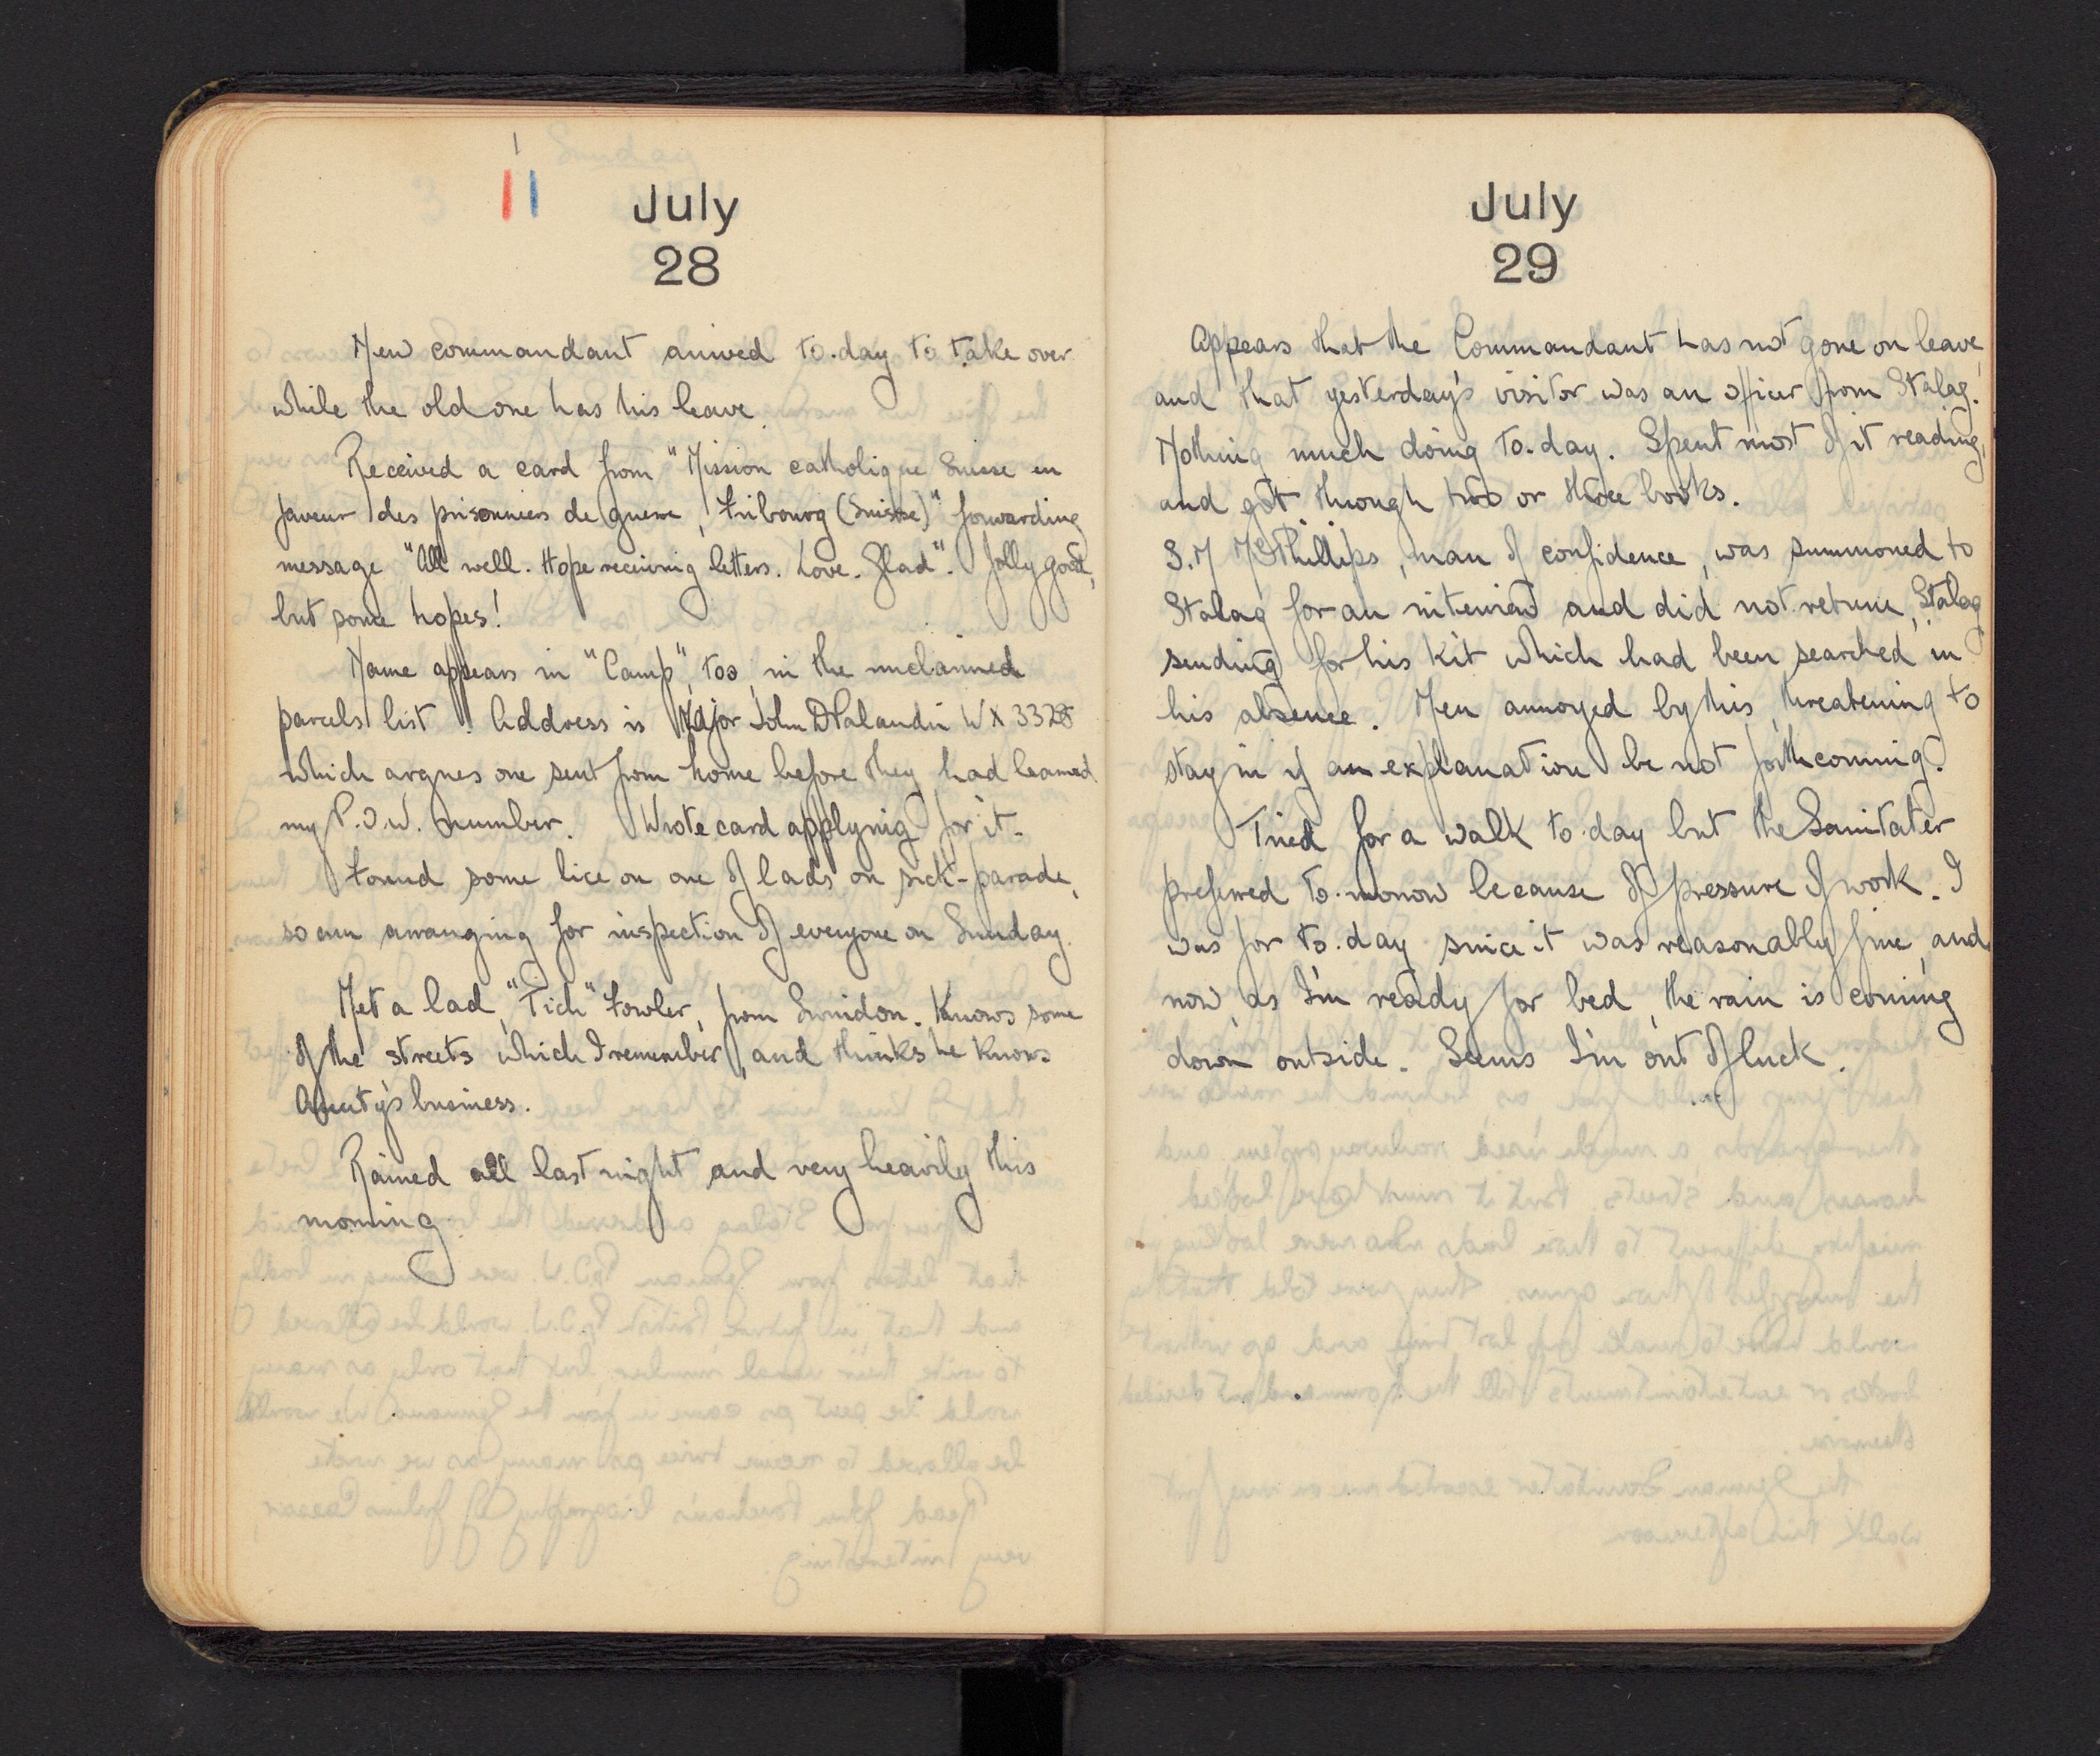 July
28
New commandant arrived to-day to take over
while the old one has his leave.
Received a card from "Mission catholique Suisse en
faveur des prisonniers de guerre, Fribourg (Suisse)" forwarding
message "All well. Hope receiving letters. Love. Glad". Jolly good,
but some hopes!
Name appears in "Camp", too, in the unclaimed
parcels list. Address is Major John D Palandri WX 3328
which argues one sent from home before they had learned
my P.O.W. number. Wrote card applying for it.
Found some lice on one of lads on sick-parade,
so am arranging for inspection of everyone on Sunday.
Met a lad, "Tich" Fowler, from Swindon. Knows some
of the streets which I remember, and thinks he knows
Aunty's business.
Rained all last night and very heavily this
morning.
July
29
Appears that the Commandant has not gone on leave,
and that yesterday's visitor was an officer from Stalag.
Nothing much doing to-day. Spent most of it reading,
and got through two or three books.
S.M McPhillips, man of confidence, was summoned to
Stalag for an interview and did not return, Stalag
sending for his kit which had been searched in
his absence. Men annoyed by this, threatening to
stay in if an explanation be not forthcoming.
Tried for a walk to-day but the Sanitater
preferred to-morrow because of pressure of work. I
was for to-day since it was reasonably fine, and
now, as I'm ready for bed, the rain is coming
down outside. Seems I'm out of luck.